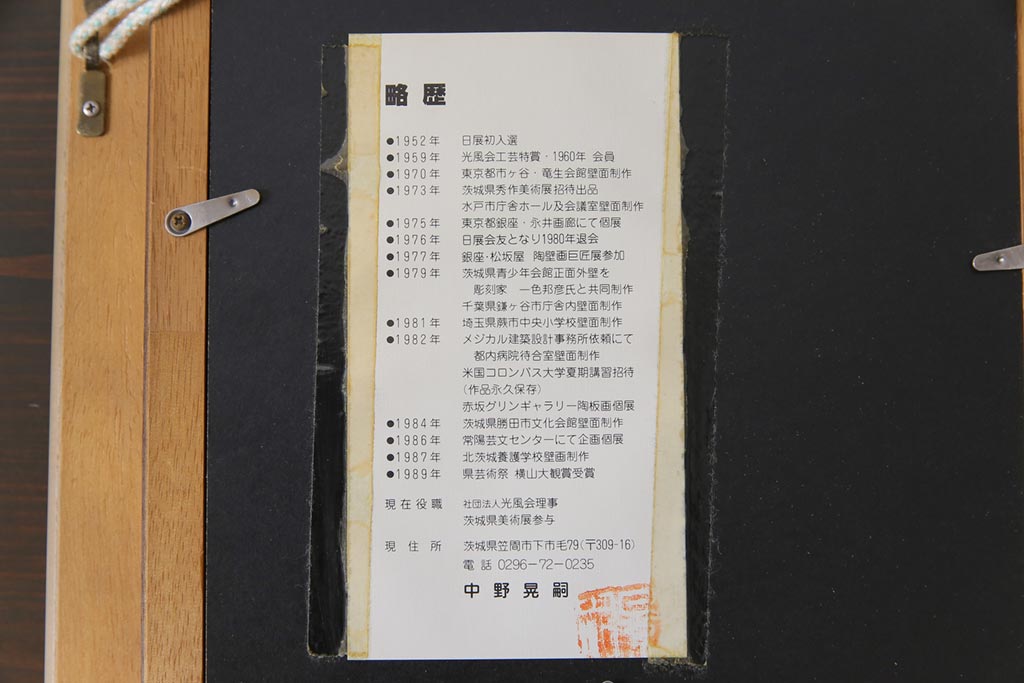 略歴
●1952年 日展初入選
●1959年 光風会工芸特賞・1960年 会員
●1970年 東京都市ヶ谷・竜生会館壁面制作
●1973年 茨城県秀作美術展招待出品
水戸市庁舎ホール及会議室壁面制作
●1975年 東京都銀座・永井画廊にて個展
●1976年 日展会友となり1980年退会
●1977年 銀座・松坂屋 陶壁画巨匠展参加
●1979年 茨城県青少年会館正面外壁を
彫刻家 一色邦彦氏と共同制作
千葉県鎌ヶ谷市庁舎内壁面制作
●1981年 埼玉県蕨市中央小学校壁面制作
●1982年 メジカル建築設計事務所依頼にて
都内病院待合室壁面制作
米国コロンバス大学夏期講習招待
(作品永久保存)
赤坂グリンギャラリー陶板画個展
●1984年 茨城県勝田市文化会館壁面制作
●1986年 常陽芸文センターにて企画個展
●1987年 北茨城養護学校壁画制作
●1989年 県芸術祭 横山大観賞受賞
現在役職 社団法人光風会理事
茨城県美術展参与
現住所 茨城県笠間市下市毛79(〒309-16)
電話 0296-72-0235
中野晃嗣